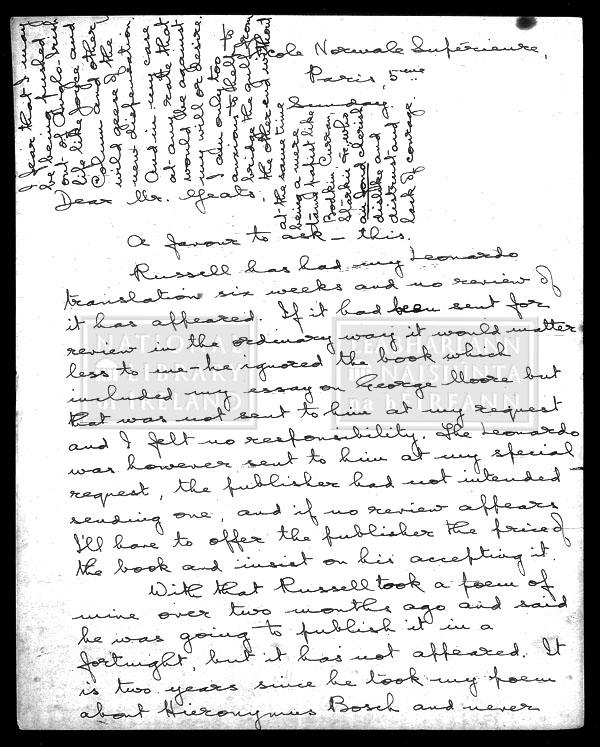 École Normale Supérieure,
Paris, 5me
Sunday.
Dear Mr. Yeats,
A favour to ask – this.
Russell has had my Leonardo
translation six weeks and no review of
it has appeared. If it had been sent for
review in the ordinary way it would matter
less to me – he ignored the book which
included my essay on George Moore but
that was not sent to him at my request
and I felt no responsibility. The Leonardo
was however sent to him at my special
request, the publisher had not intended
sending one, and if no review appears
I'll have to offer the publisher the price of
the book and insist on his accepting it.
With that Russell took a poem of
mine over two months ago and said
he was going to publish it in a
fortnight, but it has not appeared. It
is two years since he took my poem
about Hieronymus Bosch and never
I fear that I may
be being pushed
out of Anglo-Irish
life like Joyce and
Colum and other
wild geese of the
new dispensation.
And in my case
at any rate that
would be against
my will or desire.
I am only too
anxious to help to
bridge the gulf from
the other end without
at the same time
being a mere
cleric
dislike and
distrust and
lack of courage
NATIONAL
LIBRARY
of IRELAND
LEABHARLANN
NÁISIÚNTA
na hÉIREANN